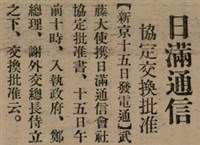 日滿通信
協定交換批准
【新京十五日發電通】武
藤大使携日滿通信會社
協定批准書、十五日午
前十時、入執政府、鄭
總理、謝外交總長侍立
之下、交換批准云。